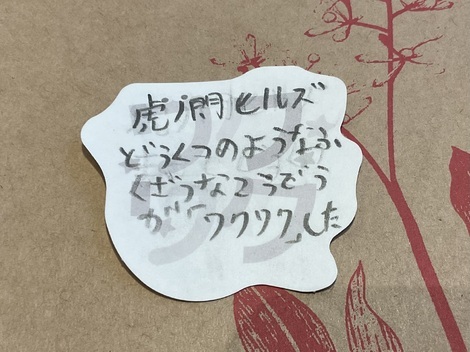 虎ノ門ヒルズ
どうくつのようなふ
くざうなこうどう
が「ワクワク」した